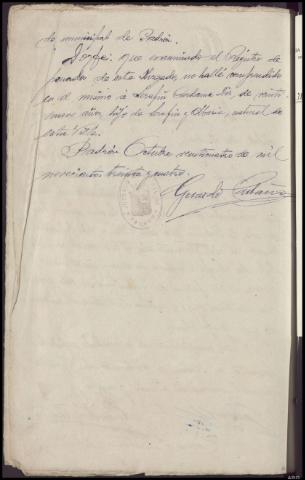 do municipal de Padrón.
Doy fe: que examinado el Registro de
penados de este Juzgado, no halló comprendido
en el mismo á Serafín de veinti
nueve años, hijo de Serafín y natural de
esta Villa.
Padrón Octubre veinticuatro de mil
novecientos treinta y cuatro.
Gerardo